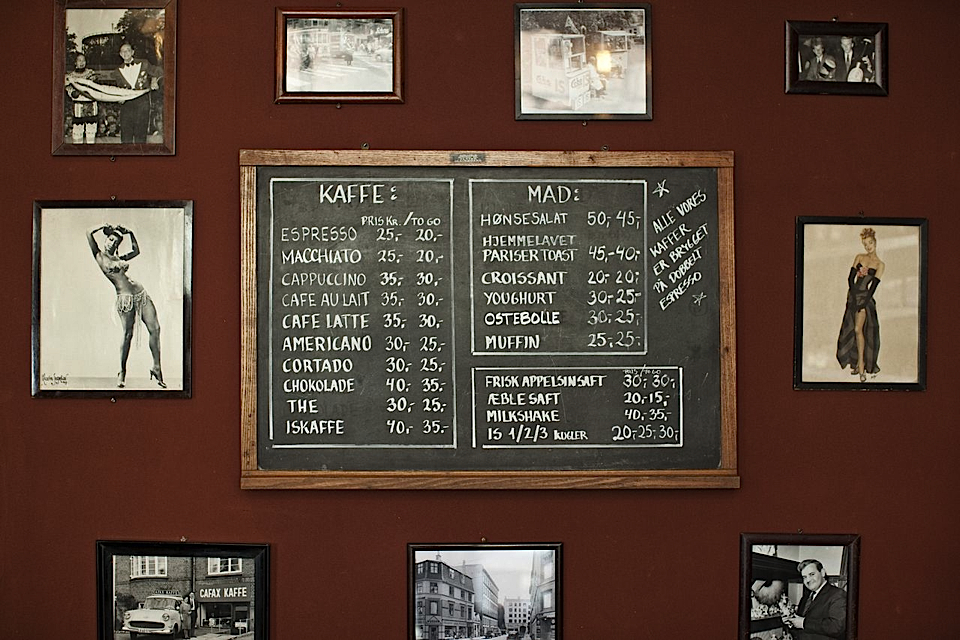 KAFFE:
PRIS KR. / TO GO
ESPRESSO 25,- 20,-
MACCHIATO 25,- 20,-
CAPPUCCINO 35,- 30,-
CAFE AU LAIT 35,- 30,-
CAFE LATTE 35,- 30,-
AMERICANO 30,- 25,-
CORTADO 30,- 25,-
CHOKOLADE 40,- 35,-
THE 30,- 25,-
ISKAFFE 40,- 35,-
MAD:
HØNSESALAT 50,- 45,-
HJEMMELAVET
PARISER TOAST 45,- 40,-
CROISSANT 20,- 20,-
YOUGHURT 30,- 25,-
OSTEBOLLE 30,- 25,-
MUFFIN 25,- 25,-
PRIS / TO GO
FRISK APPELSINSAFT 30,- 30,-
ÆBLESAFT 20,- 15,-
MILKSHAKE 40,- 35,-
IS 1/2/3 KUGLER 20,- 25,- 30,-
ALLE VORES
KAFFER
ER BRYGGET
PÅ DOBBELT
ESPRESSO
CAFAX KAFFE